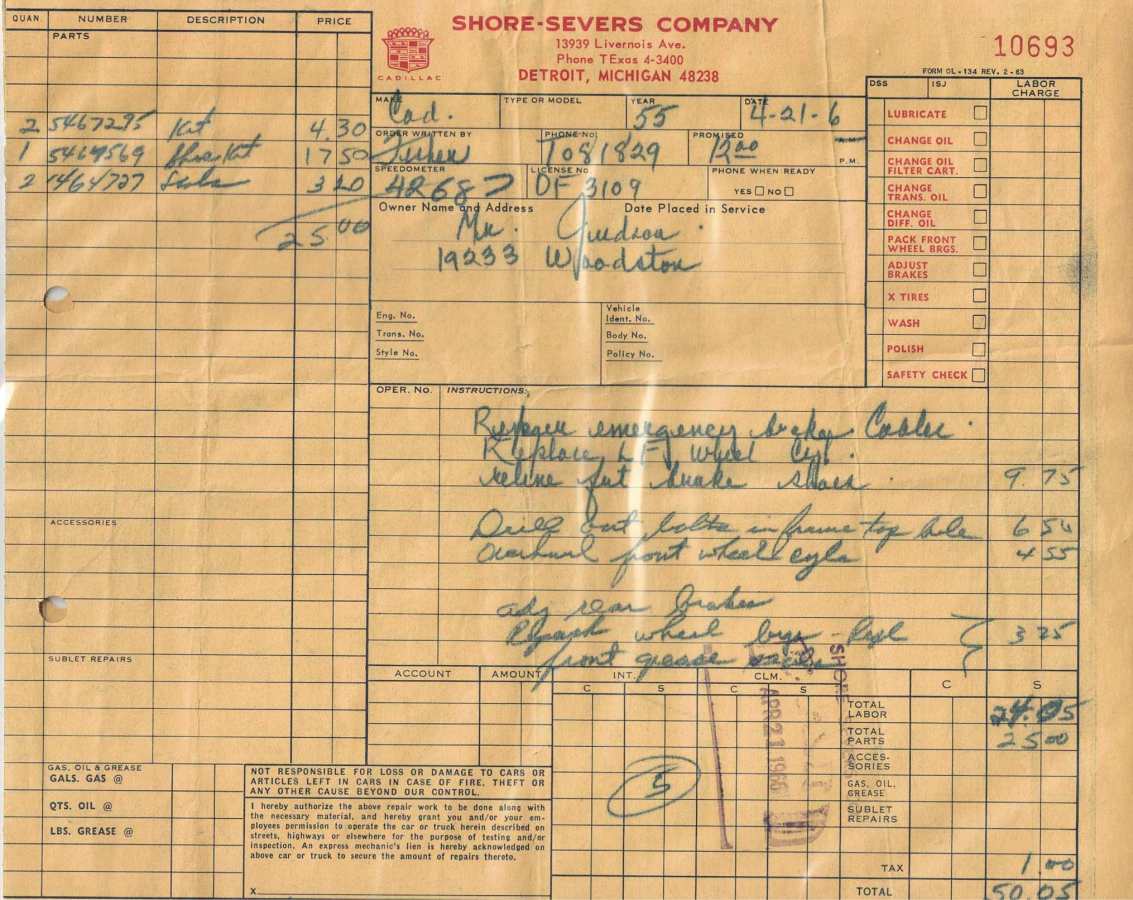 QUAN. NUMBER DESCRIPTION PRICE
PARTS
2 5467295 Kit 4.30
1 5464569 Shoe Kit 17 50
2 1464727 Seals 3 20
25.00
ACCESSORIES
SUBLET REPAIRS
GAS, OIL & GREASE
GALS. GAS @
QTS. OIL @
LBS. GREASE @
CADILLAC
SHORE-SEVERS COMPANY
13939 Livernois Ave.
Phone TExas 4-3400
DETROIT, MICHIGAN 48238
10693
FORM OL-134 REV. 2-63
MAKE Cad.
TYPE OR MODEL
YEAR 55
DATE 4-21-6
ORDER WRITTEN BY
PHONE No. TO81829
PROMISED 12 00 A.M. P.M.
SPEEDOMETER 42687
LICENSE No. DF 3109
PHONE WHEN READY
YES NO
Owner Name and Address Date Placed in Service
Mr. Judson
19233 Woodston
Eng. No.
Trans. No.
Style No.
Vehicle
Ident. No.
Body No.
Policy No.
DSS ISJ LABOR
CHARGE
LUBRICATE
CHANGE OIL
CHANGE OIL
FILTER CART.
CHANGE
TRANS. OIL
CHANGE
DIFF. OIL
PACK FRONT
WHEEL BRGS.
ADJUST
BRAKES
X TIRES
WASH
POLISH
SAFETY CHECK
OPER. No. INSTRUCTIONS:
emergency brake Cables.
Replace LF wheel Cyl.
reline frt brake shoes 9.75
Drill out bolts in frame top hole 6 50
Overhaul front wheel cyls 4 55
adj rear brakes
Repack wheel brgs - Repl 3 25
front grease seals
ACCOUNT AMOUNT INT. CLM.
C S C S C S
5
SHORE
APR 21 1966
TOTAL
LABOR 24.05
TOTAL
PARTS 25 00
ACCES-
SORIES
GAS, OIL,
GREASE
SUBLET
REPAIRS
TAX 1.00
TOTAL 50.05
NOT RESPONSIBLE FOR LOSS OR DAMAGE TO CARS OR
ARTICLES LEFT IN CARS IN CASE OF FIRE, THEFT OR
ANY OTHER CAUSE BEYOND OUR CONTROL.
I hereby authorize the above repair work to be done along with
the necessary material, and hereby grant you and/or your em-
ployees permission to operate the car or truck herein described on
streets, highways or elsewhere for the purpose of testing and/or
inspection. An express mechanic's lien is hereby acknowledged on
above car or truck to secure the amount of repairs thereto.
X